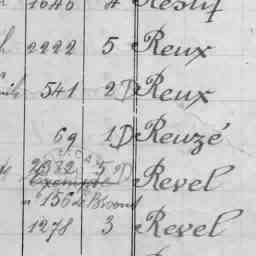 1646 4 Restif
2222 5 Reux
541 2D Reux
69 1D Reuzé
2382 5 D Revel
Exempté
"156 Le Blond
1278 3 Revel